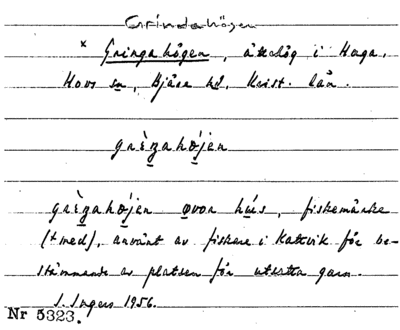 Grindahögen
× Gringahögen, ättehög i Haga,
Hovs sn, Bjäre hd, Krist. län.
grèŋahǿjen
grèŋahǿjen ovan hús, fiskemärke
(+med), använt av fiskare i Kattvik för be-
stämmande av platsen för utsatta garn.
S. Ingers 1956.
Nr 5323.